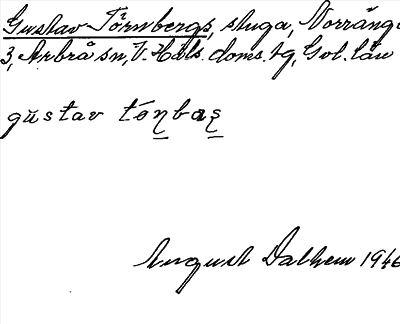 Gustav Törnbergs, stuga, Norränge
3, Arbrå sn, V. Häls. doms. tg, Gvl. län
gŭstav tó̤ṉbas̱
August Dalhem 1946